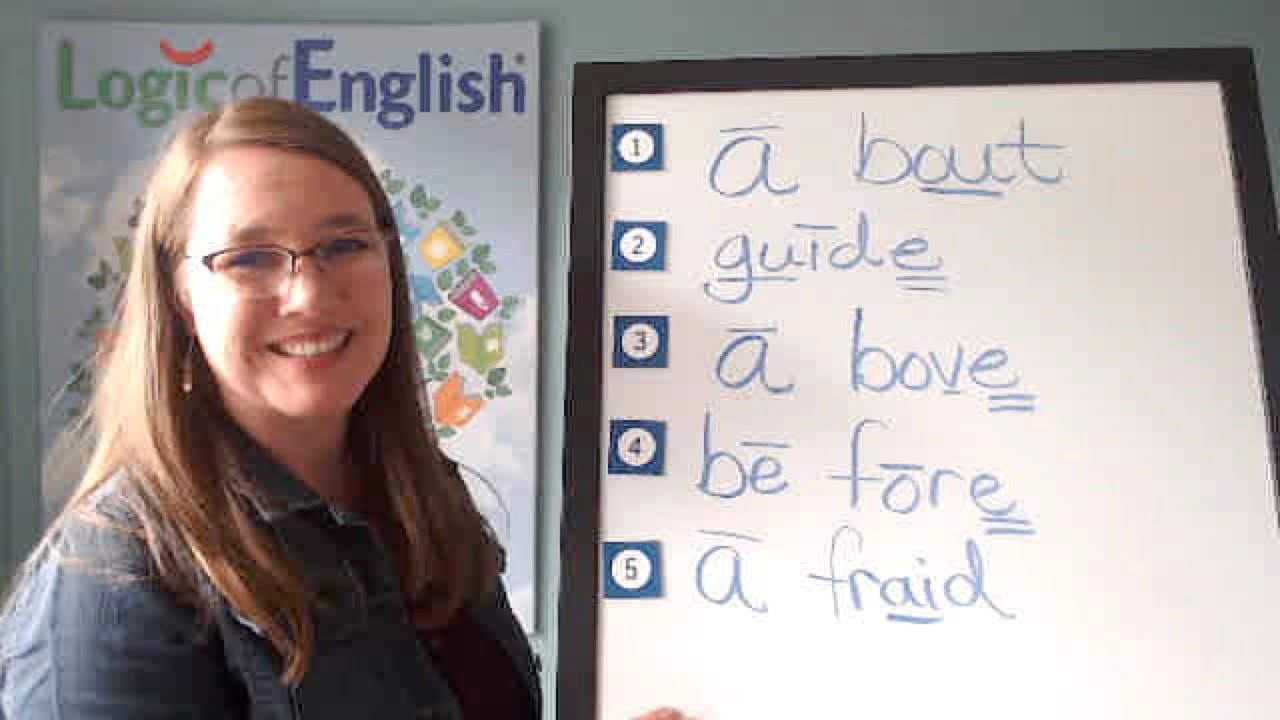 Logic of English®
1 ā bout
2 guīde
3 ā bove
4 bē fōre
5 ā fraid